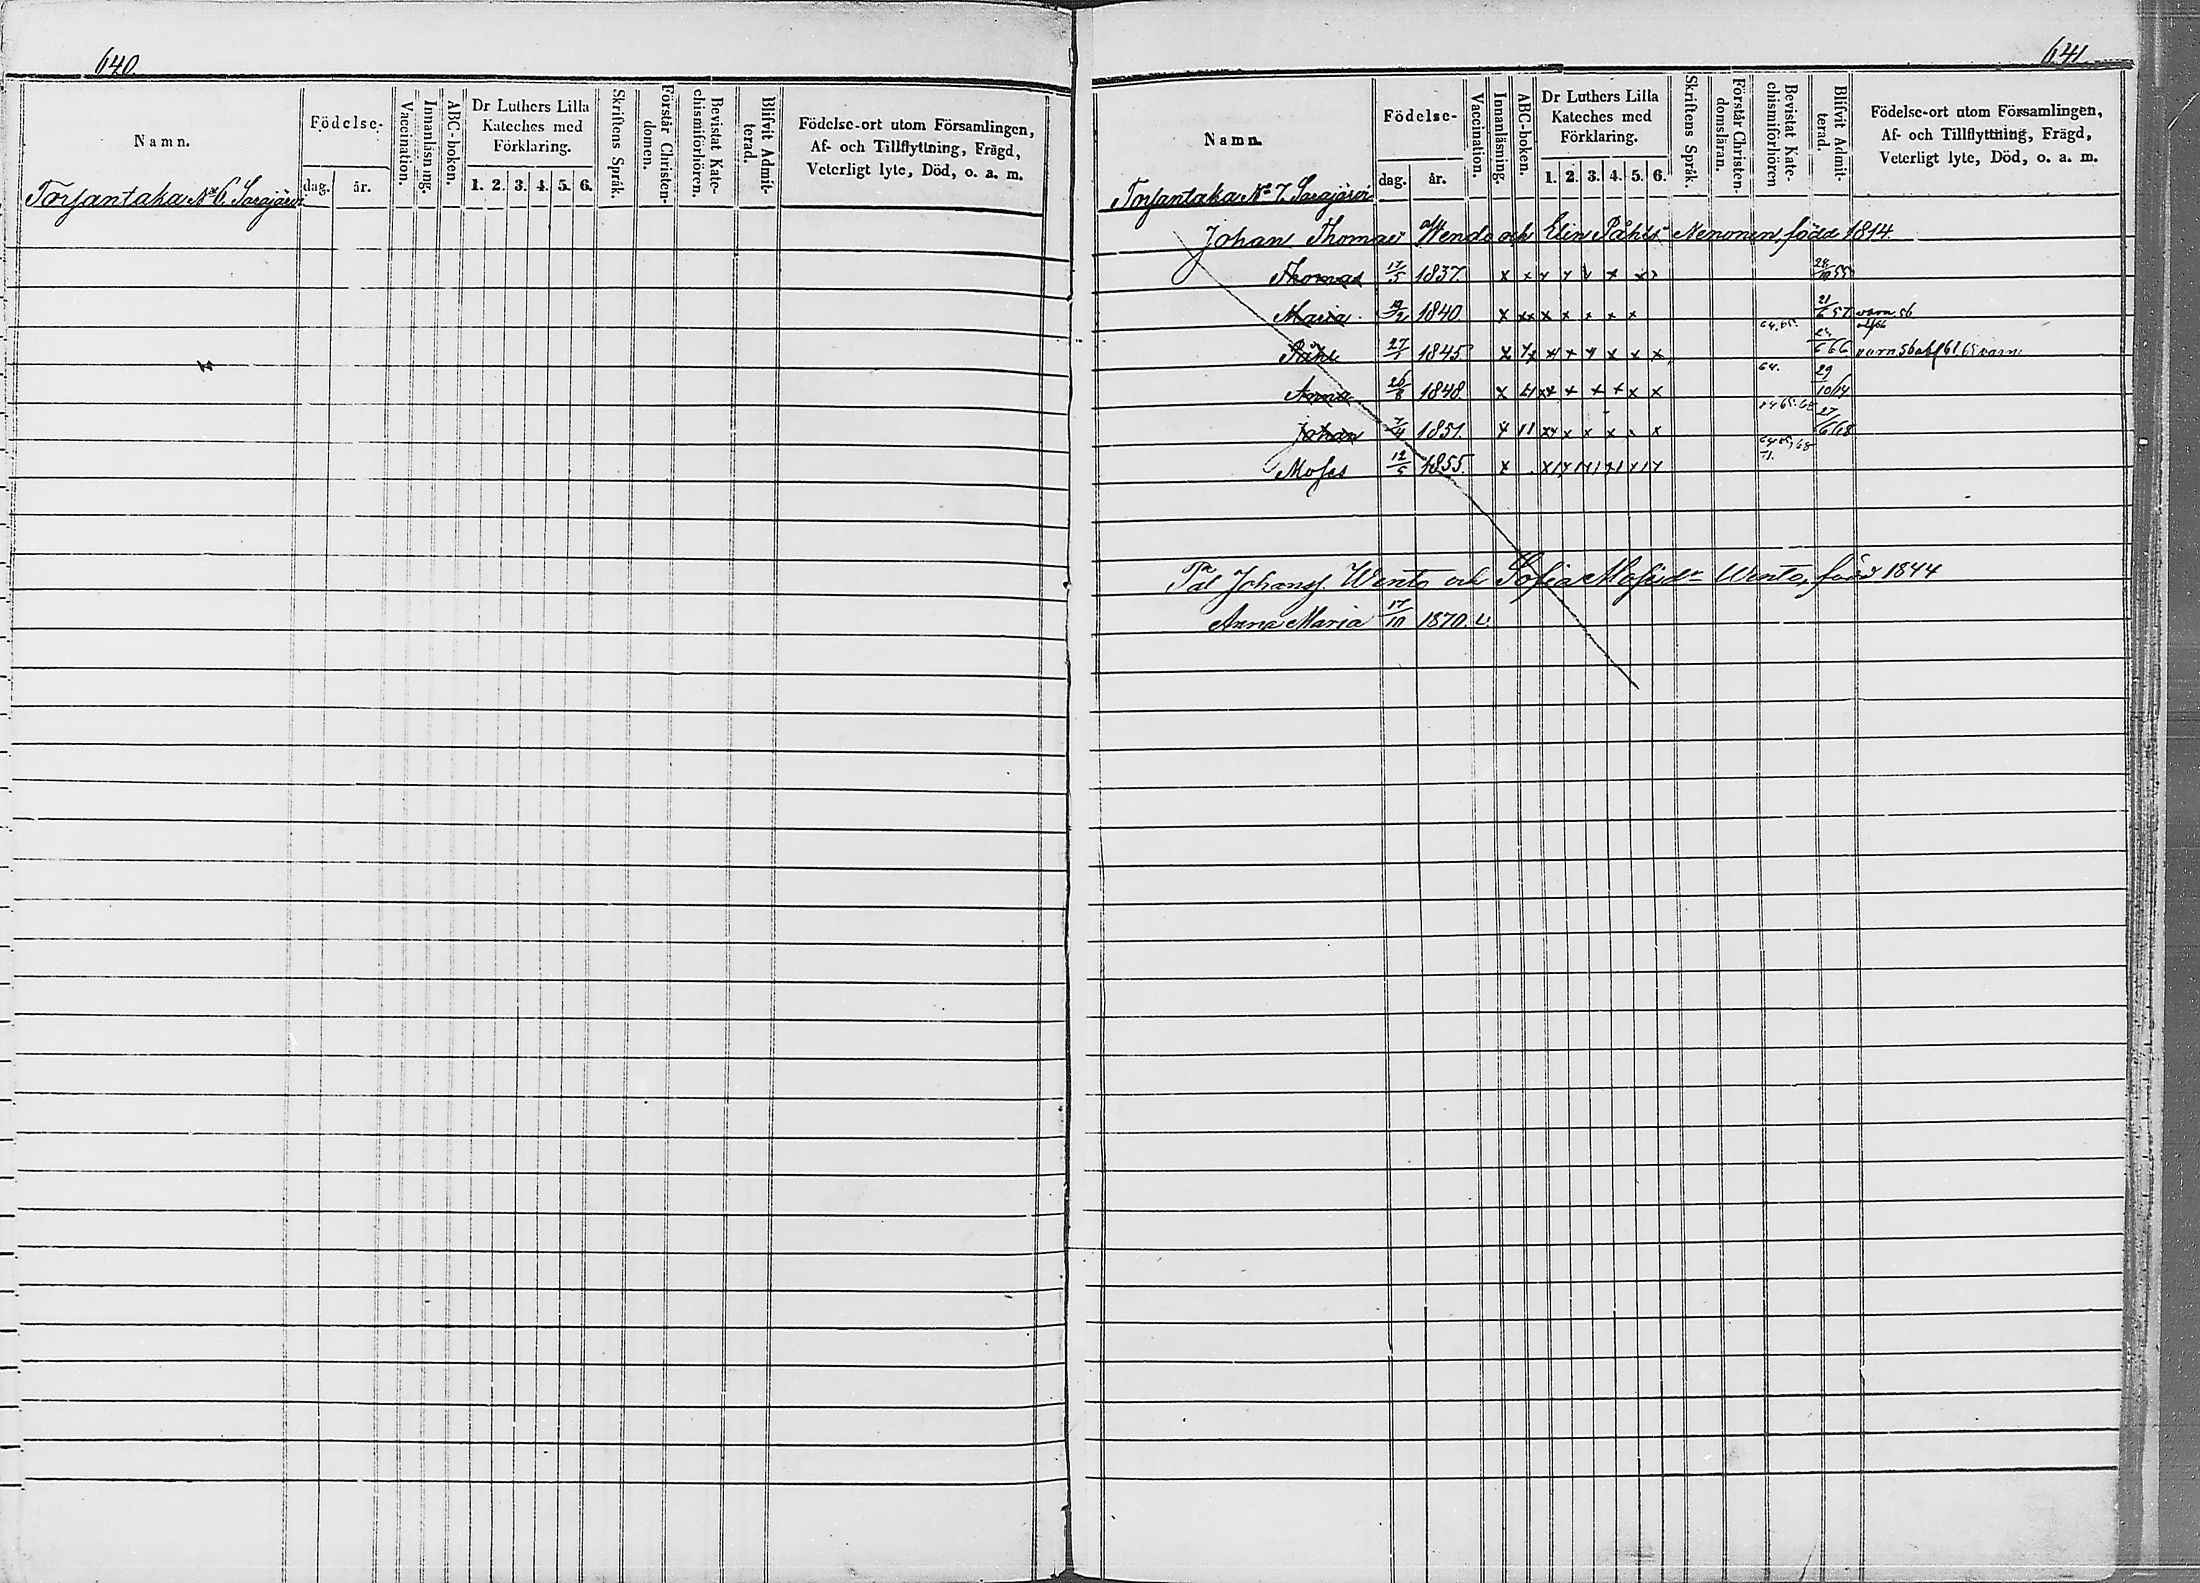 640.
Namn.
Födelse-
dag.
år.
Vaccination.
Innanläsning.
ABC-boken.
Dr Luthers Lilla
Kateches med
Förklaring.
1. 2. 3. 4. 5. 6.
Skriftens Språk.
Förstår Christen-
domen.
Bevistat Kate-
chismiförhören.
Blifvit Admit-
terad.
Födelse-ort utom Församlingen,
Af- och Tillflyttning, Frägd,
Veterligt lyte, Död, o. a. m.
Torsantaka No 6. Sarajärvi
641.
Namn.
Födelse-
dag.
år.
Vaccination.
Innanläsning.
ABC-boken.
Dr Luthers Lilla
Kateches med
Förklaring.
1. 2. 3. 4. 5. 6.
Skriftens Språk.
Förstår Christen-
domsläran.
Bevistat Kate-
chismiförhören
Blifvit Admit-
terad.
Födelse-ort utom Församlingen,
Af- och Tillflyttning, Frägd,
Veterligt lyte, Död, o. a. m.
Torsantaka No 7. Sarajärvi
Johan Thomas Wendo och Elin Påhls Nenonen, född 1814.
Thomas 13/5 1837. x x x x x x x x 28/10 55
Maria 19/2 1840. x xx x x x x x 21/6 57 varn 56
Påhl 27/1 1845 x x x x x x x x 64.65. 24/6 66 varn 56
Anna 26/8 1848 x x xx x x x x x 64. 29/10 64
Johan 7/4 1851. x 11 xx x x x x x 64 65. 68 27/6 68
Moses 12/5 1855. x x x x x x x 64 65, 68 71.
Pål Johanss. Wento och Sofia Mosesdr Wento, född 1844
Anna Maria 17/10 1870. v.